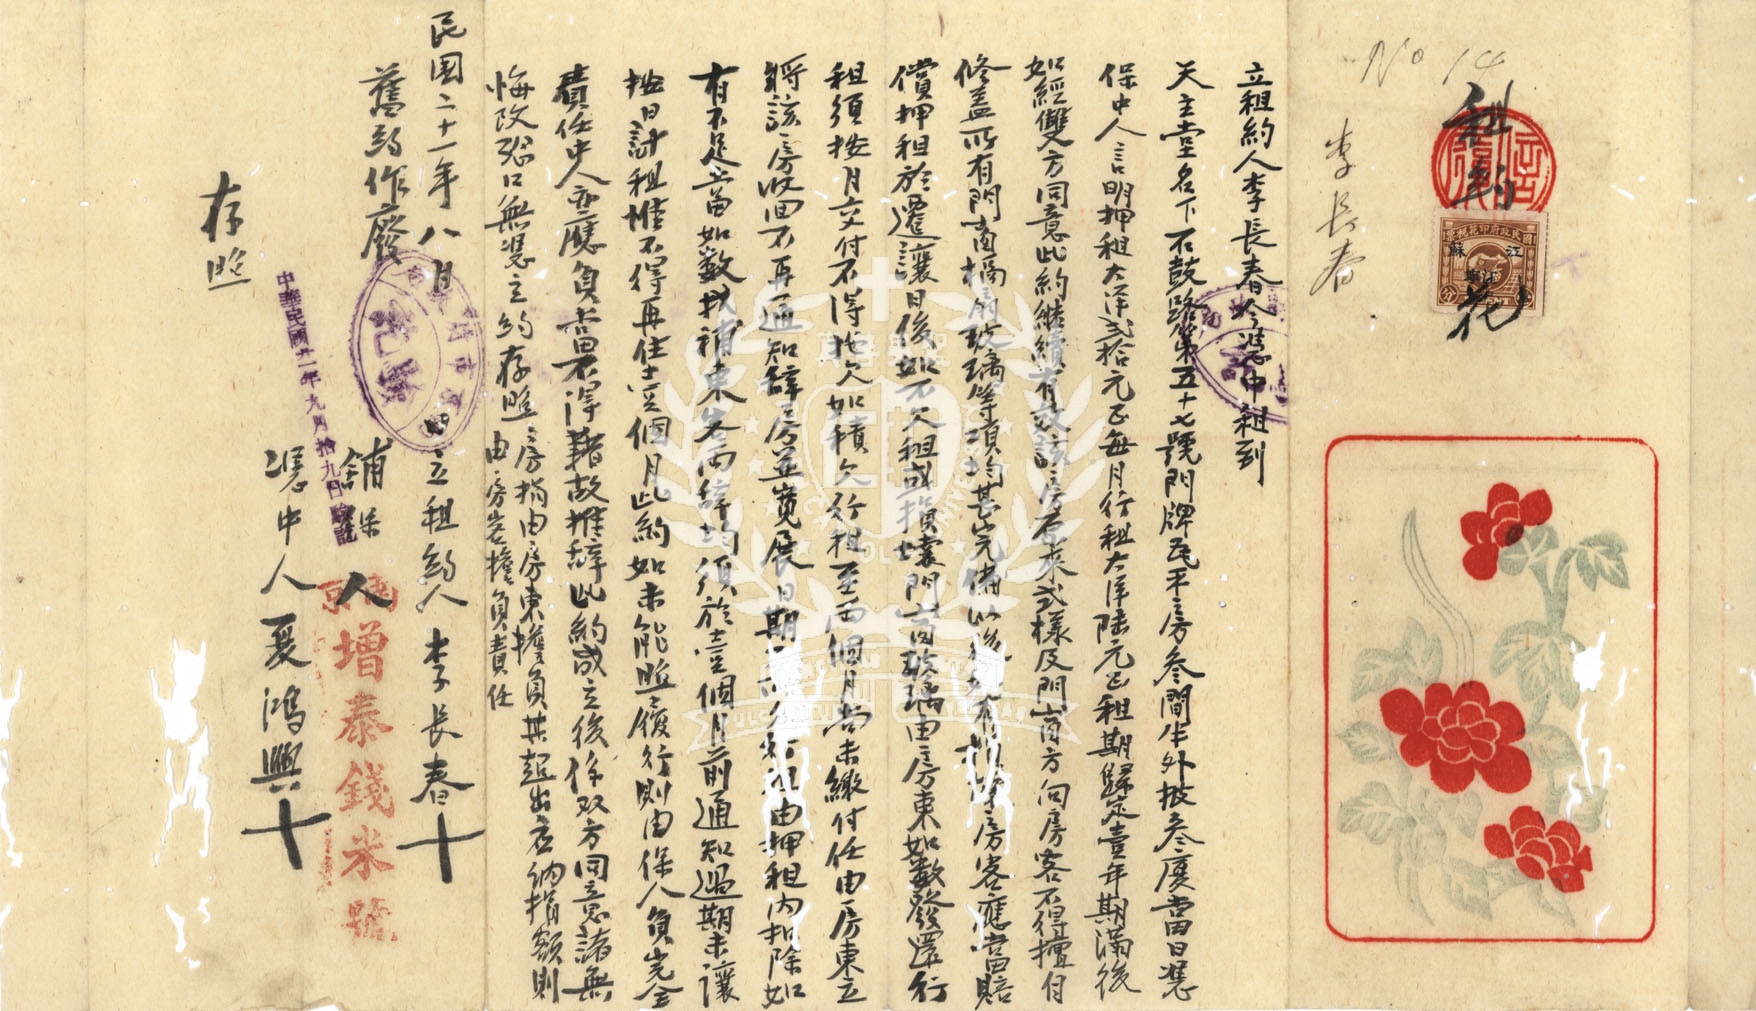 No 14
租約
李長春
立租約人李長春今憑中租到
天主堂名下石鼓路第五十七號門牌瓦平房叁間半外披叁廈當日憑
保中人言明押租大洋貳拾元正每月行租大洋陸元正租期歸定壹年期滿後
如經雙方同意此約繼續有效該房原來式樣及門窗方向房客不得擅自
修蓋所有門窗槅扇玻璃等項均甚完備以後如有損壞房客應當賠
償押租於遷讓日後如不欠租或損壞門窗玻璃由房東如數發還行
租須按月交付不得拖欠如積欠行租至兩個月尚未繳付任由房東立
將該房收回不再通知辭房並寬展日期 行租由押租內扣除如
有不足當如數找補東客兩辭均須於壹個月前通知過期未讓
按日計租惟不得再住壹個月此約如未能照履行則由保人負完全
責任中人亦應負責不得藉故推辭此約成立後係双方同意諸無
悔改恐口無憑立約存照 房捐由房東擔負其超出應納捐額則
由房客擔負責任
民國二十一年八月 日立租約人李長春十
舊約作廢
舖保人
南京增泰錢米號
憑中人夏鴻興十
中華民國廿一年九月拾九日驗訖
存照